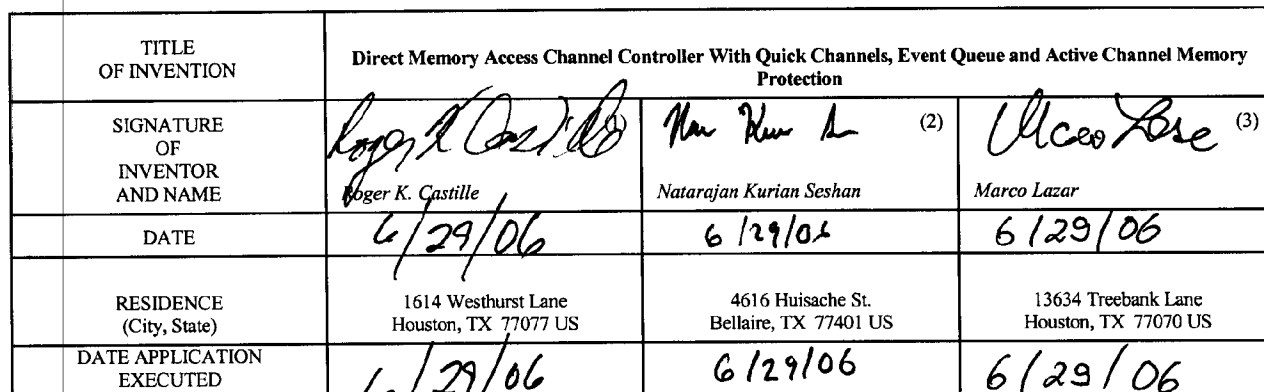 TITLE
OF INVENTION
Direct Memory Access Channel Controller With Quick Channels, Event Queue and Active Channel Memory
Protection
SIGNATURE
OF
INVENTOR
AND NAME
Roger K Castille (1)
(2)
(3)
Roger K. Castille
Natarajan Kurian Seshan
Marco Lazar
DATE
6/29/06
6/29/06
6/29/06
RESIDENCE
(City, State)
1614 Westhurst Lane
Houston, TX 77077 US
4616 Huisache St.
Bellaire, TX 77401 US
13634 Treebank Lane
Houston, TX 77070 US
DATE APPLICATION
EXECUTED
6/29/06
6/29/06
6/29/06